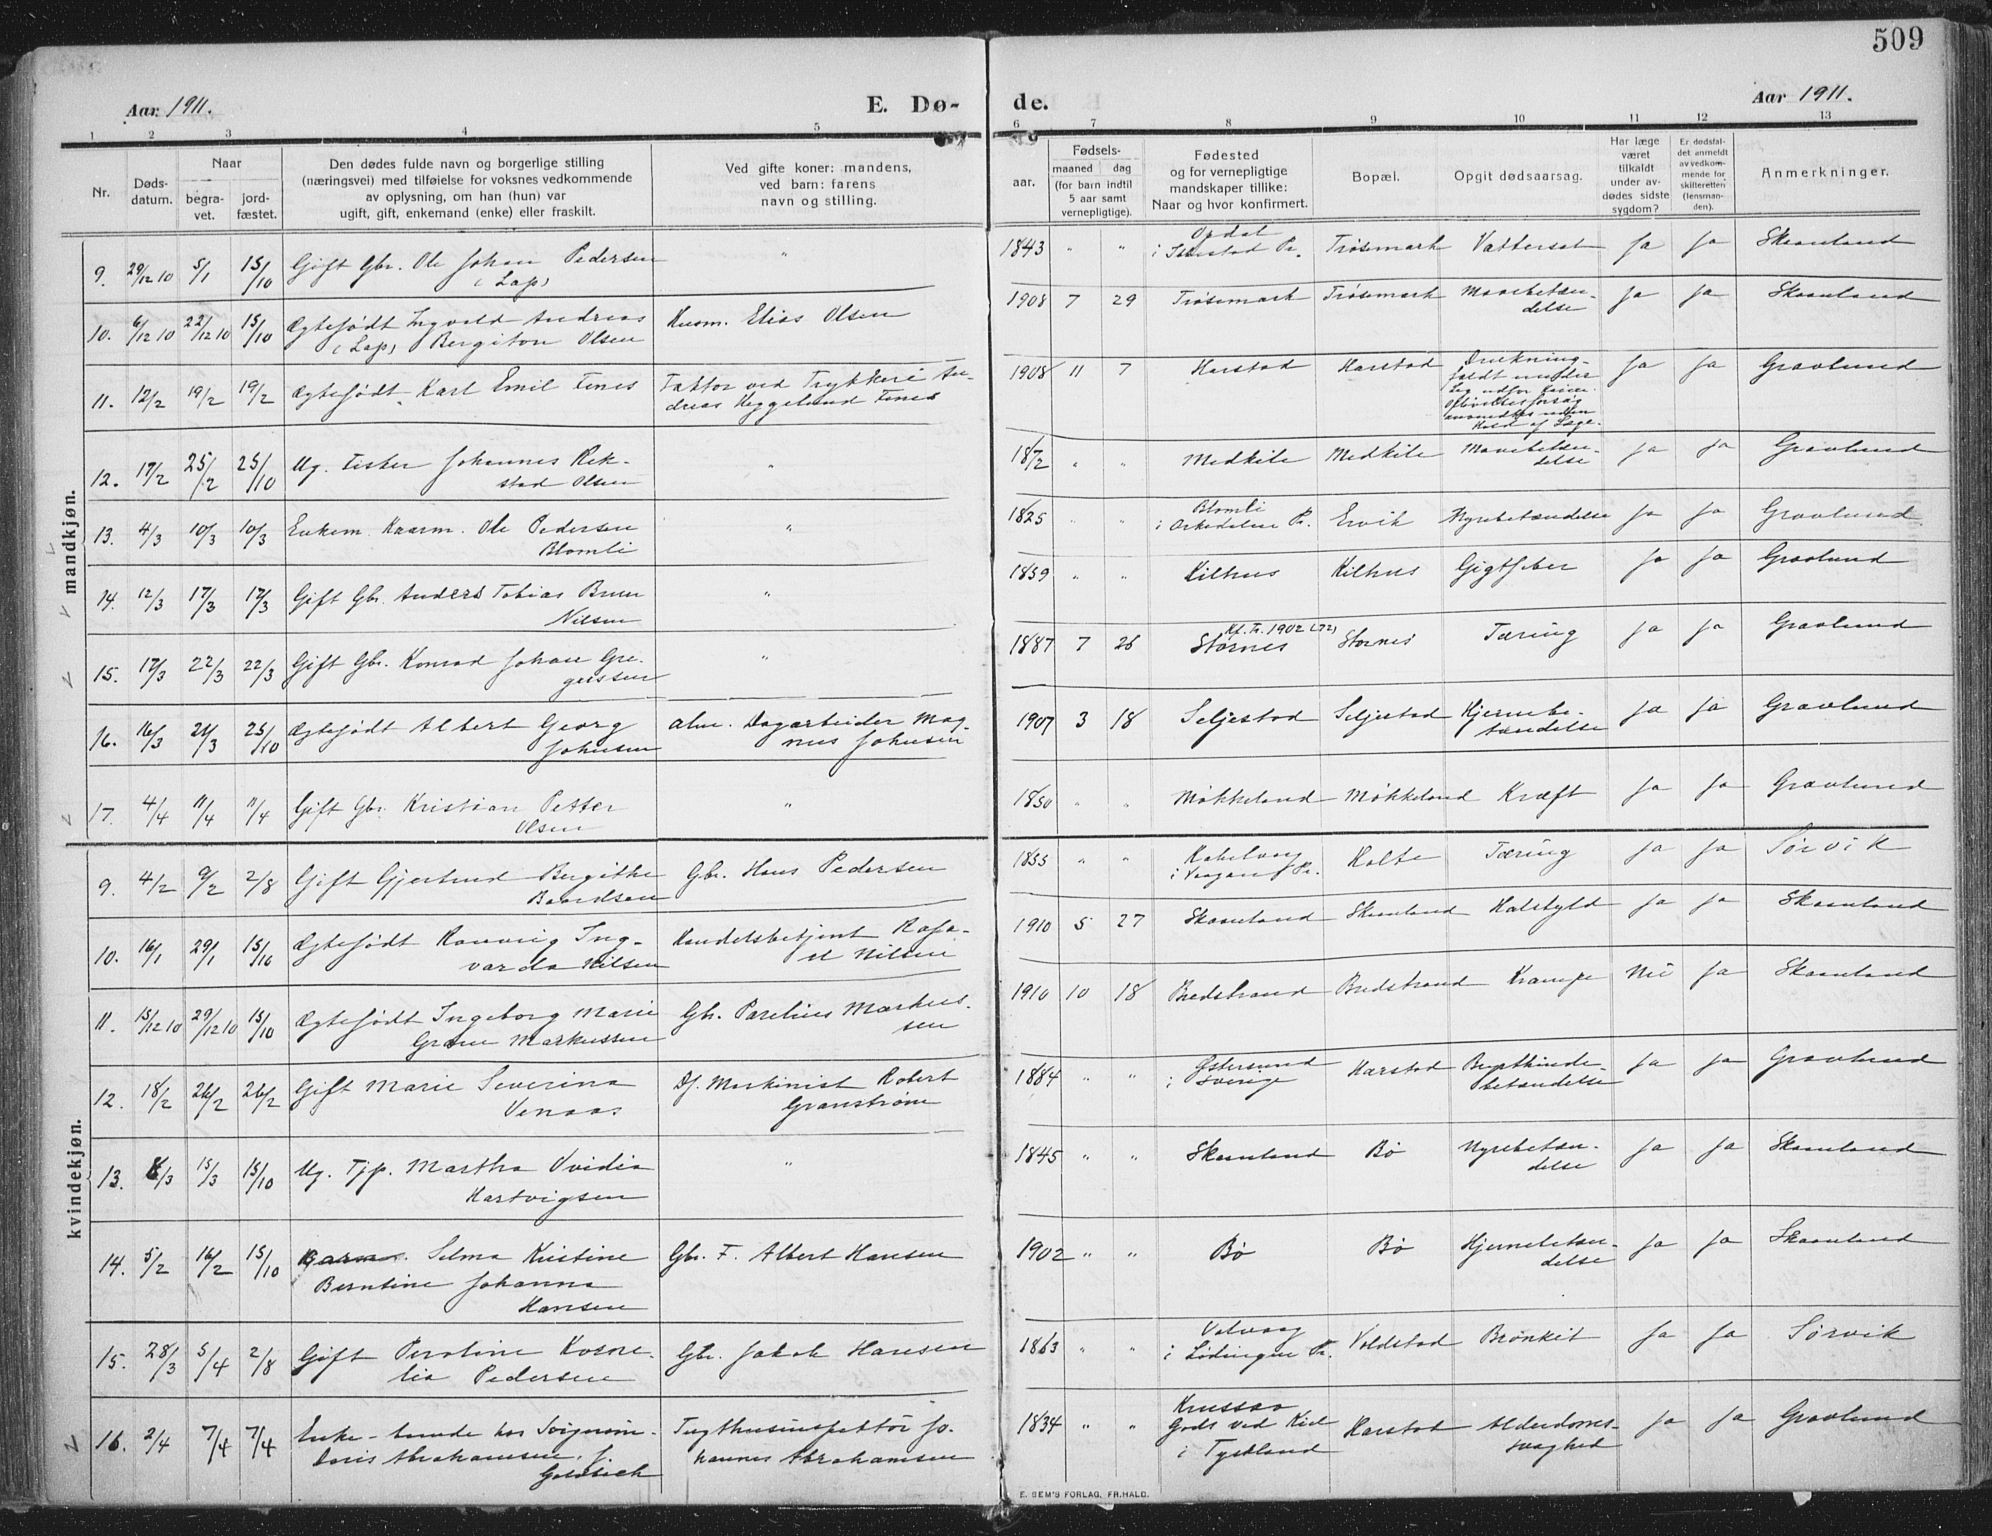 509
Aar 1911.
E. Dø-
de.
Aar 1911.
1 2 3 4 5 6 7 8 9 10 11 12 13
Nr.
Døds-
datum.
Naar
begra-
vet.
jord-
fæstet.
Den dødes fulde navn og borgerlige stilling
(næringsvei) med tilføielse for voksnes vedkommende
av oplysning, om han (hun) var
ugift, gift, enkemand (enke) eller fraskilt.
Ved gifte koner: mandens,
ved barn: farens
navn og stilling.
aar.
Fødsels-
maaned dag
(for barn indtil
5 aar samt
vernepligtige).
Fødested
og for vernepligtige
mandskaper tillike:
Naar og hvor konfirmert.
Bopæl.
Opgit dødsaarsag.
Har læge
været
tilkaldt
under av-
dødes sidste
sygdom?
Er dødsfal-
det anmeldt
av vedkom-
mende for
skifteretten
(lensman-
den).
Anmerkninger.
mandkjøn.
9. 29/12 10 5/1 15/10 Gift Gbr. Ole Johan Pedersen " 1843 " " Opdal
(Lap) i Pr. Trøsemark Vattersot Ja Ja Skaanland
10. 6/12 10 22/12 10 15/10 Ægtefødt Ingvald Andreas Husm. Elias Olsen 1908 7 29 Trøsemark Trøsemark Mavebetæn- Ja Ja Skaanland
(Lap) Bergiton Olsen delse
11. 12/2 19/2 19/2 Ægtefødt Karl Emil Fines Faktor ved Trykkeri An- 1908 11 7 Harstad Harstad Drukning- Ja Ja Gravlund
dreas Heggelund Fines faldt under
Leg udfor Kaien
Oplivelsesforsøg
anvendtes uden
Hold af Læge.
12. 17/2 25/2 25/10 Ug. Fisker Johannes Rik- " 1872 " " Medkile Medkile Mavebetæn- Ja Ja Gravlund
stad Olsen delse
13. 4/3 10/3 10/3 Enkem. Kaarm. Ole Pedersen " 1825 " " Blomli
Blomli i Orkedalens Pr. Ervik Nyrebetændelse Ja Ja Gravlund
14. 12/3 17/3 17/3 Gift Gbr. Anders Tobias Bruun " 1859 " " Kilhus Kilhus Gigtfeber Ja Ja Gravlund
Nilsen
15. 17/3 22/3 22/3 Gift Gbr. Konrad Johan Gre- " 1887 7 26 Kf. Tr. 1902 (72)
gerssen Stornes Stornes Tæring Ja Ja Gravlund
16. 16/3 21/3 25/10 Ægtefødt Albert Georg alm. Dagarbeider Mag- 1907 3 18 Seljestad Seljestad Hjernebe- Ja Ja Gravlund
Johnsen nus Johnsen tændelse
17. 4/4 11/4 11/4 Gift Gbr. Kristian Petter " 1850 " " Møkkeland Møkkeland Kræft Ja Ja Gravlund
Olsen
kvindekjøn.
9. 4/2 9/2 2/8 Gift Gjertrud Bergithe Gbr. Hans Pedersen 1855 " " Kabelvaag Holte Tæring Ja Ja Sørvik
Baardsen i Vaagans Pr.
10. 16/1 29/1 15/10 Ægtefødt Ranveig Ing- Handelsbetjent Rafa- 1910 5 27 Skaanland Skaanland Halsbyld Ja Ja Skaanland
varda Nilsen el Nilsen
11. 15/12 10 29/12 10 15/10 Ægtefødt Ingeborg Marie Gbr. Parelius Markus- 1910 10 18 Bredstrand Bredstrand Krampe Nei Ja Skaanland
Markussen sen
12. 18/2 26/2 26/2 Gift Marie Severina Df. Maskinist Robert 1884 " " Østersund Harstad Brysthinde- Ja Ja Gravlund
Venaas Granstrøm i Sverige betændelse
13. 8/3 15/3 15/10 Ug. Tjp. Martha Ovidia " 1845 " " Skaanland Bø Nyrebetæn- Ja Ja Skaanland
Hartvigsen delse
14. 5/2 16/2 15/10 Barn. Selma Kristine Gbr. F. Albert Hansen 1902 " " Bø Bø Hjernebetæn- Ja Ja Skaanland
Berntine Johanna delse
Hansen
15. 28/3 5/4 2/8 Gift Peroline Korne- Gbr. Jakob Hansen 1863 " " Valvaag Voldstad Bronkit Ja Ja Sørvik
lia Pedersen i Lødingen Pr.
16. 2/4 7/4 7/4 Enke - hos Tugthusinspektør Jo- 1834 " " Gods ved Kiel Harstad Alderdoms- Ja Ja Gravlund
Doris Abrahamsen, f. hannes Abrahamsen i Tyskland svaghed
E. SEM'S FORLAG, FR.HALD.